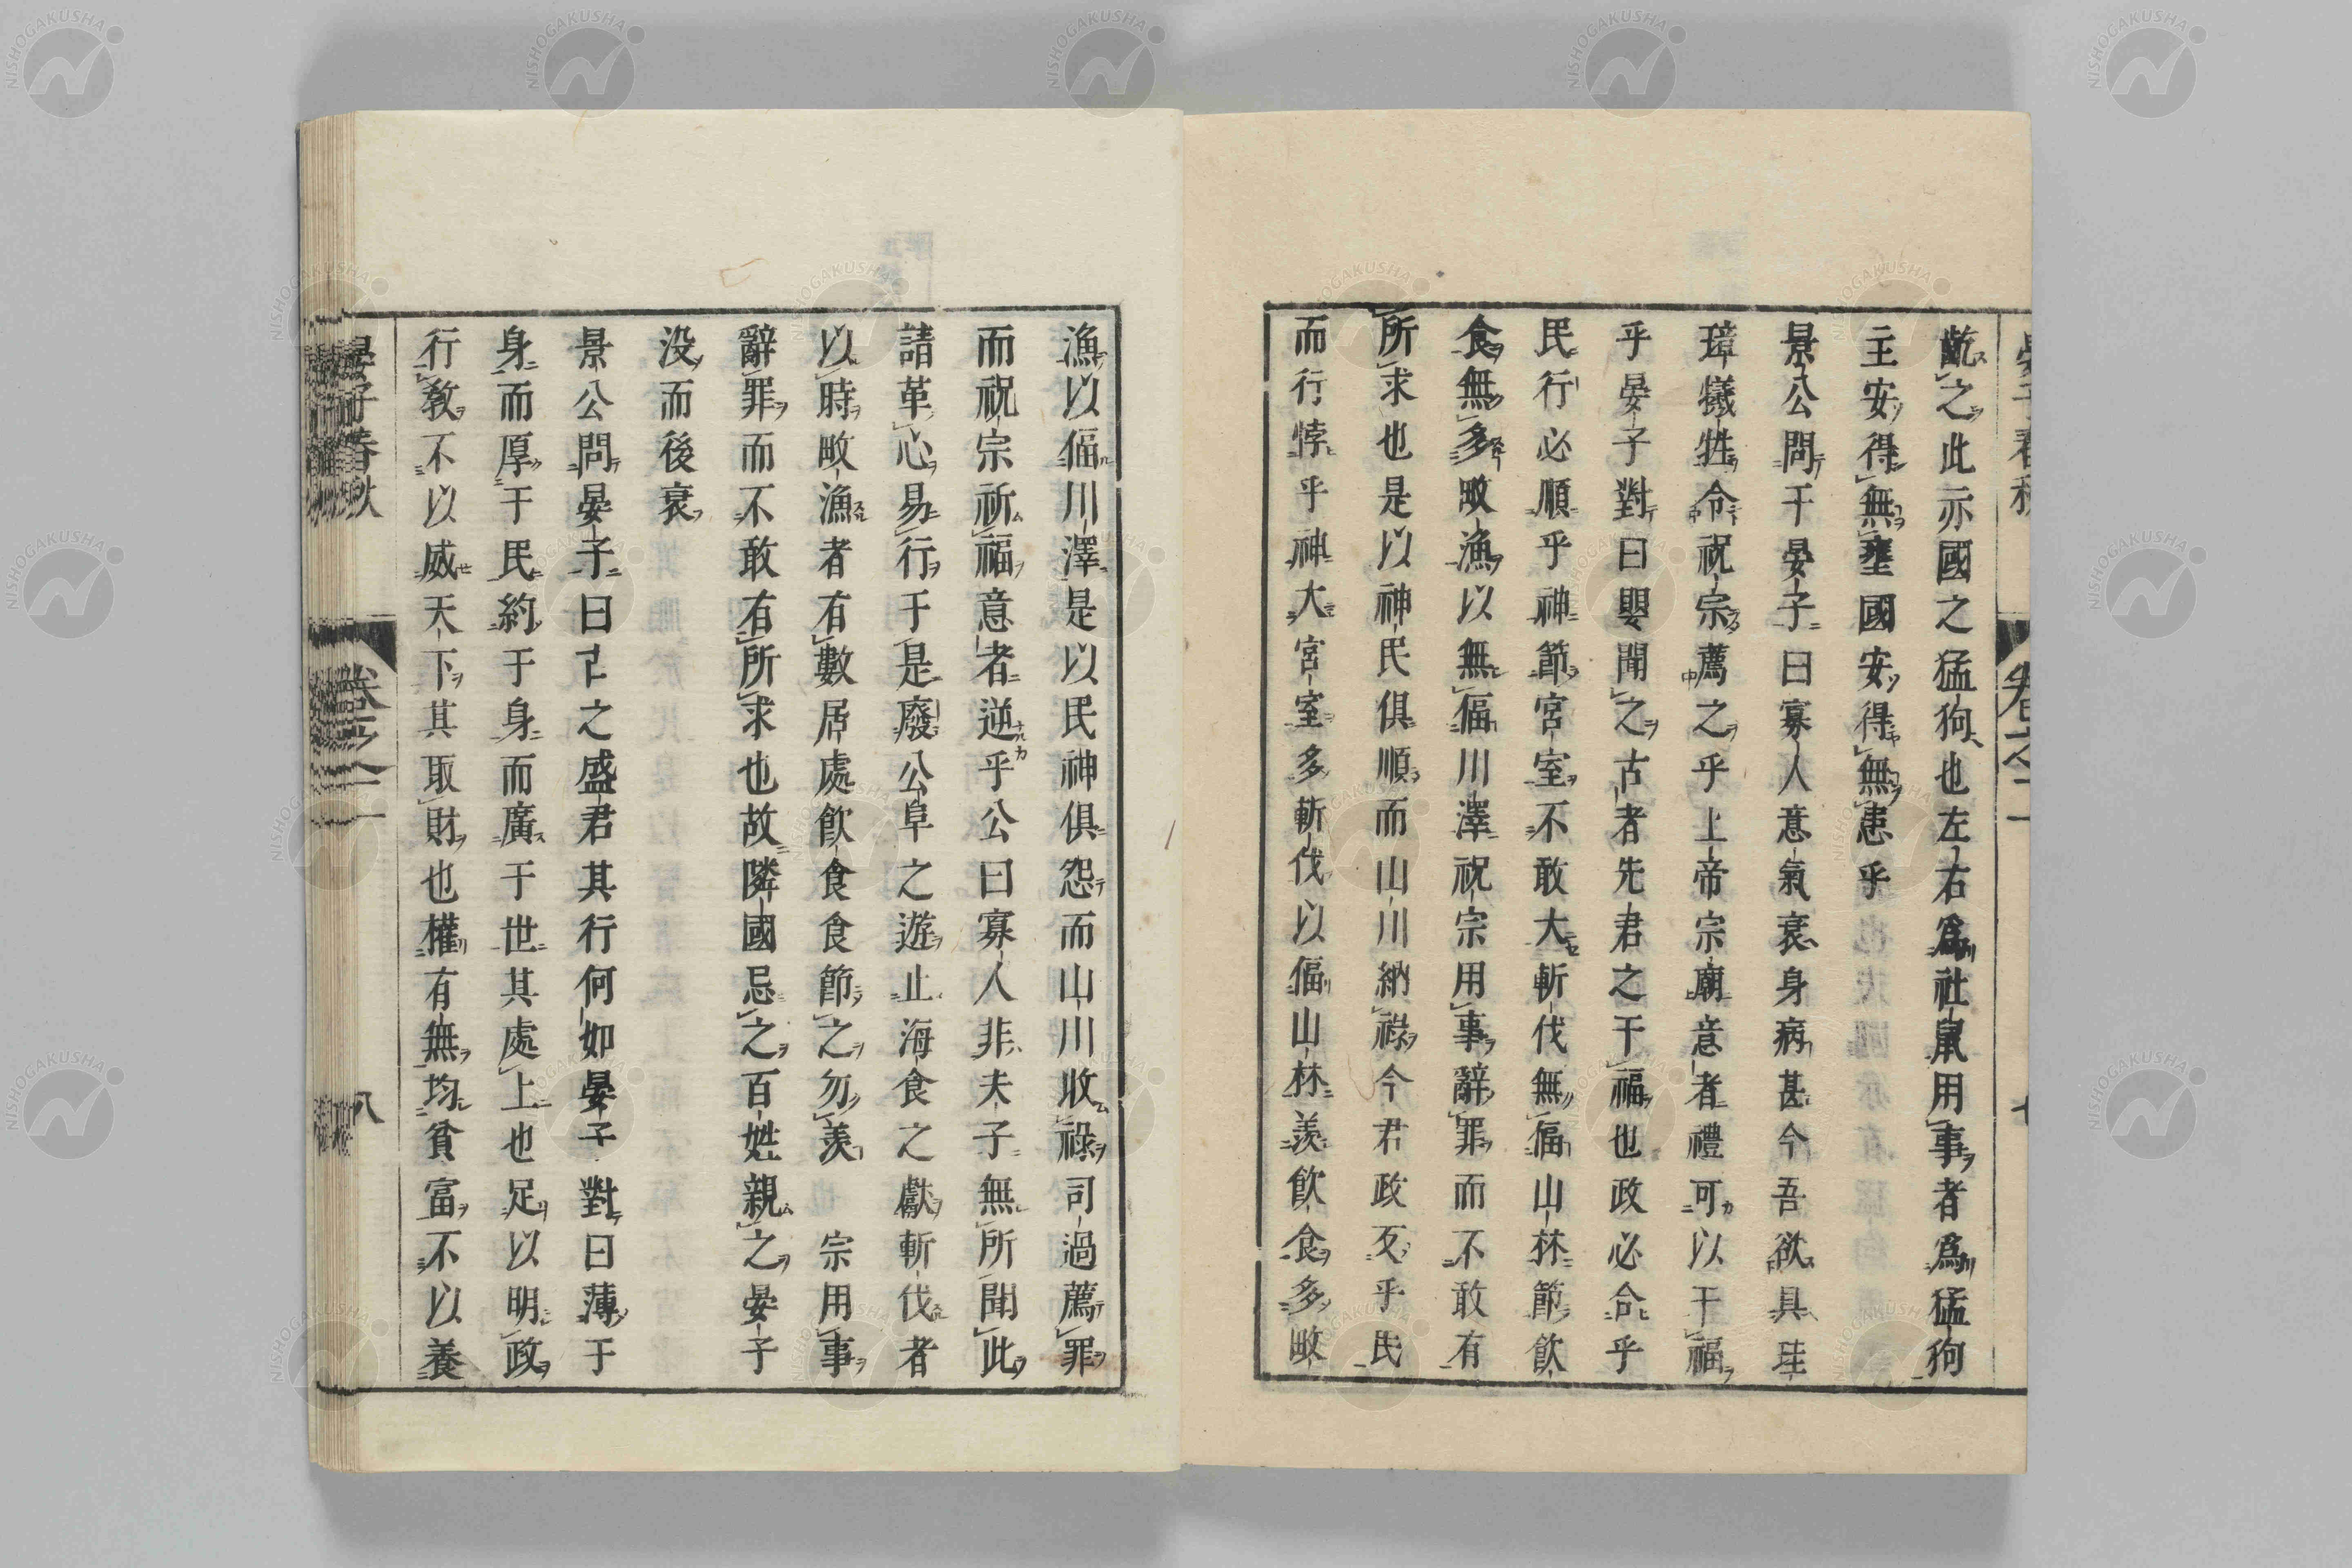 齕之此亦國之猛狗也左右爲社鼠用事者爲猛狗
主安得無壅國安得無患乎
景公問于晏子曰寡人意氣衰身病甚今吾欲具珪
璋犧牲令祝宗薦之乎上帝宗廟意者禮可以干福
乎晏子對曰嬰聞之古者先君之干福也政必合乎
民行必順乎神節宮室不敢大斬伐無偪山林節飲
食無多畋漁以無偪川澤祝宗用事辭罪而不敢有
所求也是以神民俱順而山川納祿今君政反乎民
而行悖乎神大宮室多斬伐以偪山林羨飲食多畋
漁以偪川澤是以民神俱怨而山川收祿司過薦罪
而祝宗祈福意者逆乎公曰寡人非夫子無所聞此
請革心易行于是廢公阜之遊止海食之獻斬伐者
以時畋漁者有數居處飲食食節之勿羨 宗用事
辭罪而不敢有所求也故隣國忌之百姓親之晏子
没而後衰
景公問晏子曰古之盛君其行何如晏子對曰薄于
身而厚于民約于身而廣于世其處上也足以明政
行教不以威天下其取財也權有無均貧富不以養
晏子春秋
卷之二
八
NISHOGAKUSHA